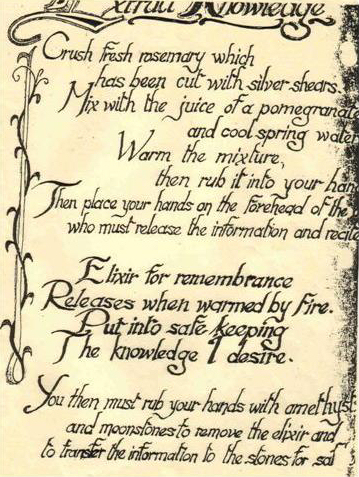 Extract Knowledge
Crush fresh rosemary which
has been cut with silver shears.
Mix with the juice of a pomegranat
and cool spring water
Warm the mixture,
then rub it into your han
Then place your hands on the forehead of the
who must release the information and recite
Elixir for remembrance
Releases when warmed by fire.
Put into safe keeping
The knowledge I desire.
You then must rub your hands with amethyst
and moonstones to remove the elixir and
to transfer the information to the stones for saf